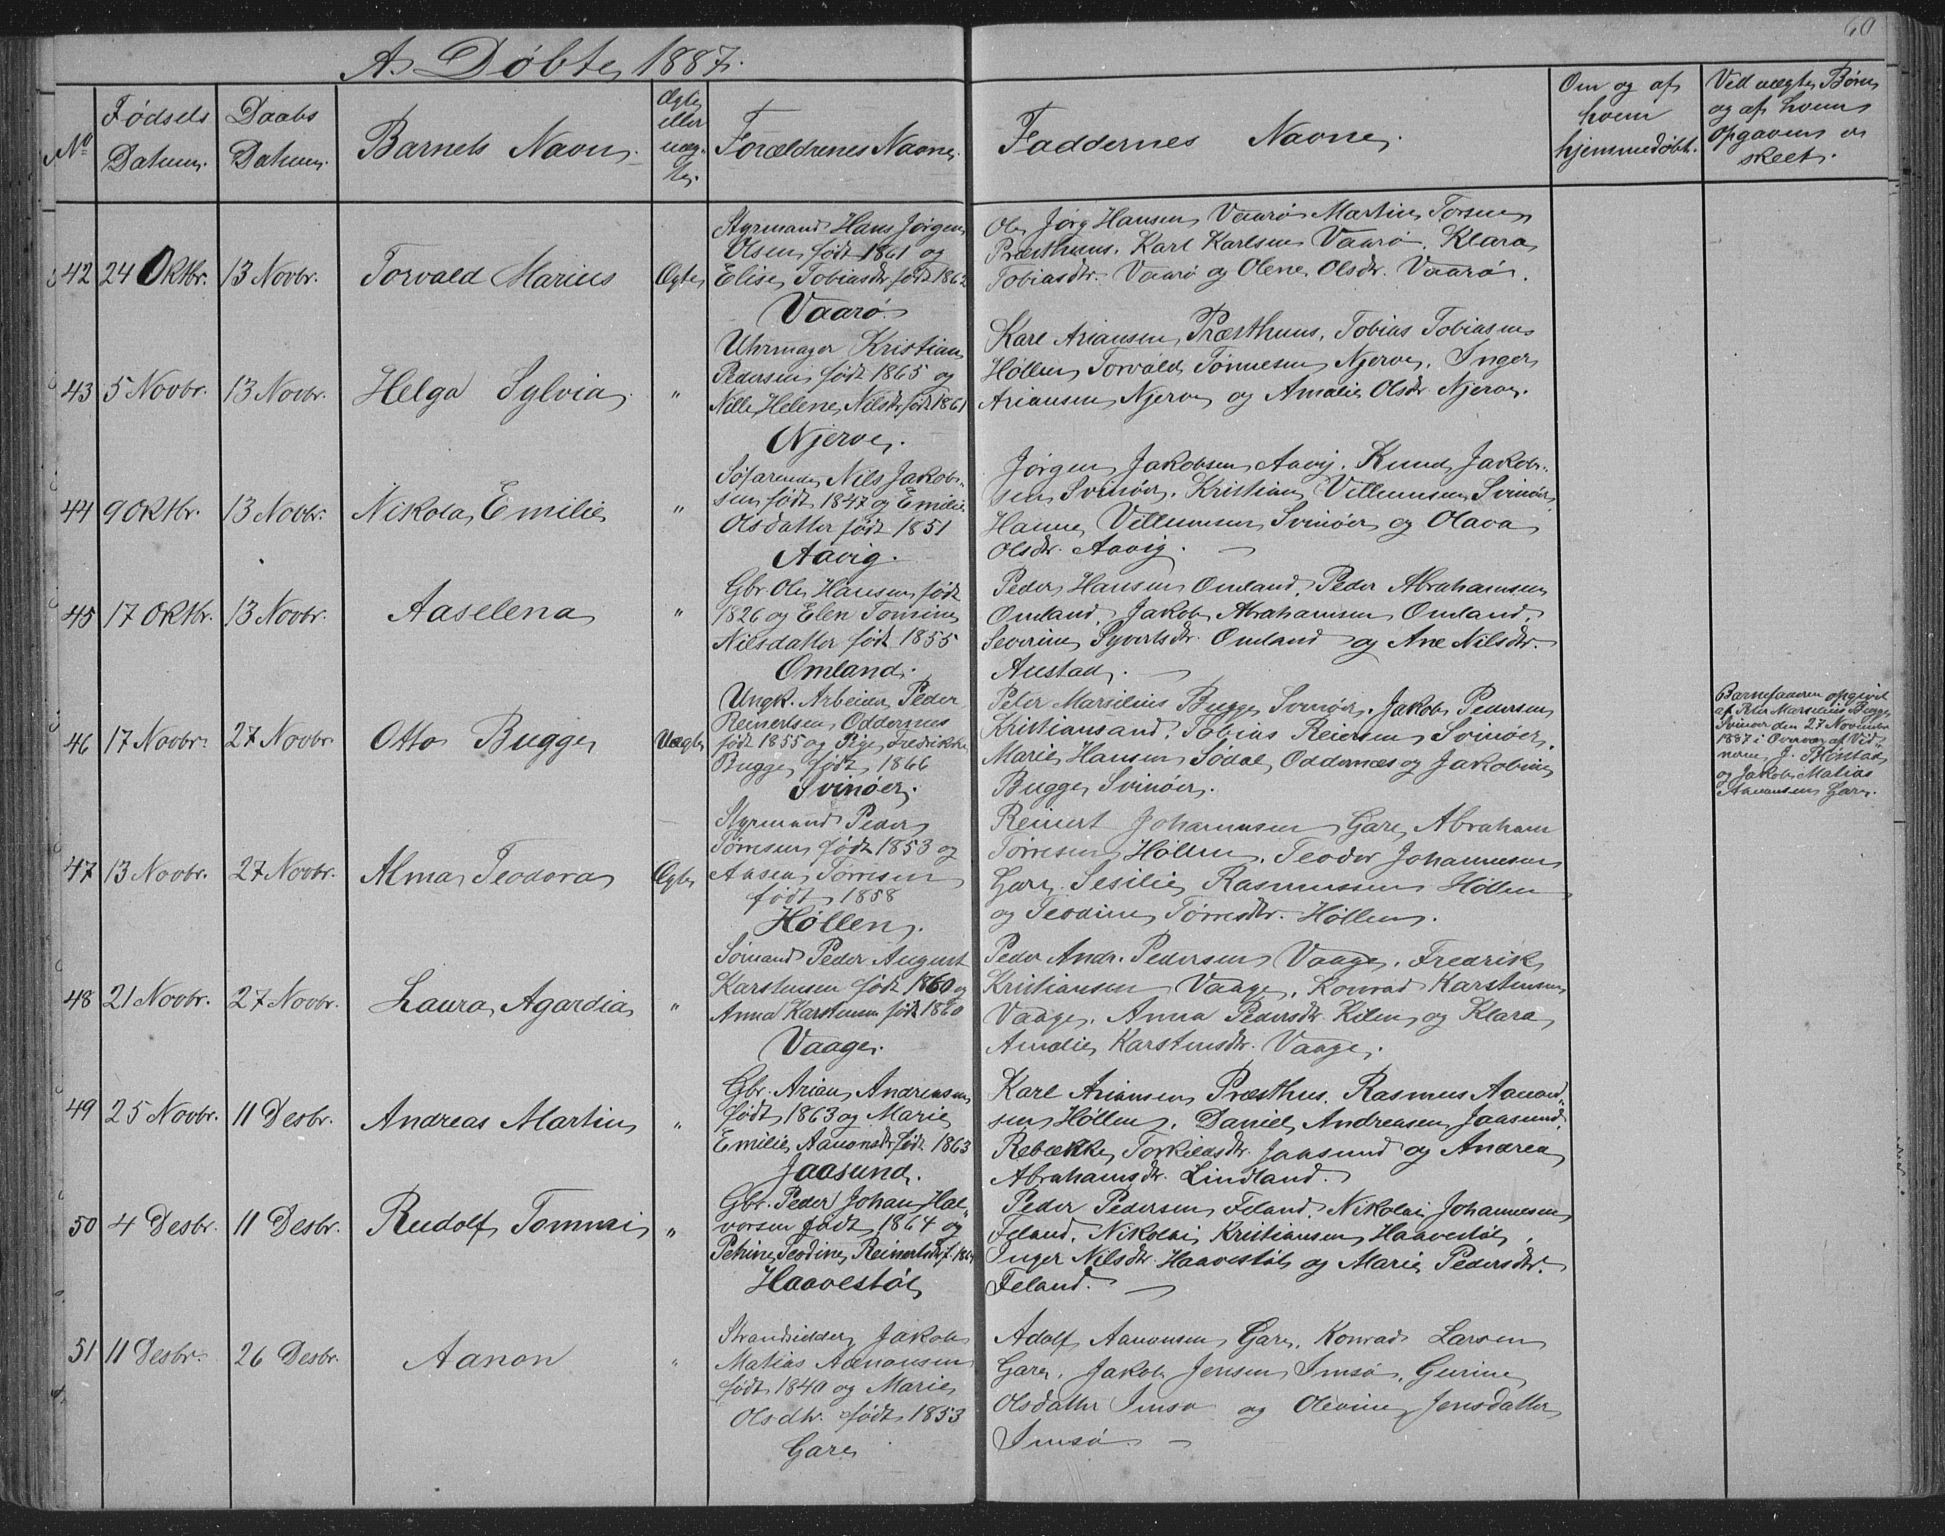 60
A. Døbte, 1887.
No
Fødsels Datum.
Daabs Datum.
Barnets Navn.
Ægte eller uæg- te.
Forældrenes Navne.
Faddernes Navne.
Om og af hvem hjemmedøbt.
Ved uægte Børn og af hvem Opgaven er skeet.
42 24 Oktbr. 13 Novbr. Torvald Marius Ægte
Styrmand Hans Jørgen
Olsen født 1861 og
Elise Tobiasdtr født 1862
Vaarø.
Ole Jørg Hansen Vaarø Martin Torsen
Præsthuus. Karl Karlsen Vaarø. Klara
Tobiasdtr. Vaarø og Olene Olsdtr. Vaarø.
43 5 Novbr. 13 Novbr. Helga Sylvia "
Uhrmager Kristian
Pedersen født 1865 og
Nille Helene Nilsdtr født 1861
Njerve.
Karl Ariansen Præsthuus. Tobias Tobiasen
Høllen Torvald Tønnesen Njerve. Inger
Ariansen Njerve og Amalie Olsdtr Njerve.
44 9 Oktbr. 13 Novbr. Nikola Emilie "
Søfarende Nils Jakob-
sen født 1847 og Emilie
Olsdatter født 1851
Aavig.
Jørgen Jakobsen Aavig. Knud Jakob-
sen Svinøer. Kristian Villumsen Svinøer
Hanne Villumsen Svinøer og Olava
Olsdtr. Aavig.
45 17 Oktbr. 13 Novbr. Aaselena "
Gbr. Ole Hansen født
1826 og Elen Tomine
Nilsdatter født 1855
Omland.
Peder Hansen Omland. Peder Abrahamsen
Omland. Jakob Abrahamsen Omland.
Severine Syvertsdtr. Omland og Ane Nilsdtr.
Austad.
46 17 Novbr. 27 Novbr. Otto Bugge Uægte
Ungk. Arbeider Peder
Reinertsen Oddernes
født 1855 og Pige Fredrikke
Bugge født 1866
Svinøer.
Peter Marselius Bugge Svinøer. Jakob Pedersen
Kristiansand. Tobias Reiersen Svinøer.
Marie Hansen Sødal, Oddernæs og Jakobine
Bugge Svinøer.
Barnefaderen opgivet
af Peter Marselius Bugge
Svinøer den 27 November
1887 i Overvær af Vid-
nerne J. Bløstad
og Jakob Matias
Aanonsen Gare.
47 13 Novbr. 27 Novbr. Alma Teodora Ægte
Styrmand Peder
Tørresen født 1853 og
Aasea Tørresen
født 1858
Høllen.
Reinert Johannesen Gare, Abraham
Tørresen Høllen. Teodor Johannesen
Gare. Sesilie Rasmussen Høllen
og Teodine Tørresdtr. Høllen.
48 21 Novbr. 27 Novbr. Laura Agardia "
Sømand Peder August
Karstensen født 1860 og
Anna Karstensen født 1860
Vaage.
Peder Andr. Pedersen Vaage. Fredrik
Kristiansen Vaage. Konrad Karstensen
Vaage. Anna Pedersdtr. Kilen og Klara
Amalie Karstensdtr. Vaage.
49 25 Novbr. 11 Desbr. Andreas Martin "
Gbr. Arian Andreasen
født 1863 og Marie
Emilie Aanonsdtr født 1863
Jaasund.
Karl Ariansen Præsthus. Rasmus Aanon-
sen Høllen. Daniel Andreasen Jaasund.
Rebække Torkildsdtr. Jaasund og Andrea
Abrahamsdtr. Lindland.
50 4 Desbr. 11 Desbr. Rudolf Tommei "
Gbr. Peder Johan Hal-
vorsen født 1864 og
Petrine Teodine Reinertsdtr f. 1864
Haavestøl
Peder Pedersen Feland. Nikolai Johannesen
Feland. Nikolai Kristiansen Haavestøl.
Inger Nilsdtr. Haavestøl og Marie Pedersdtr.
Feland.
51 11 Desbr. 26 Desbr. Aanon "
Strandsidder Jakob
Matias Aanonsen
født 1840 og Marie
Olsdtr. født 1853
Gare
Adolf Aanonsen Gare. Konrad Larsen
Gare. Jakob Jensen Imsø. Gurine
Olsdatter Imsø og Olevine Jensdatter
Imsø.